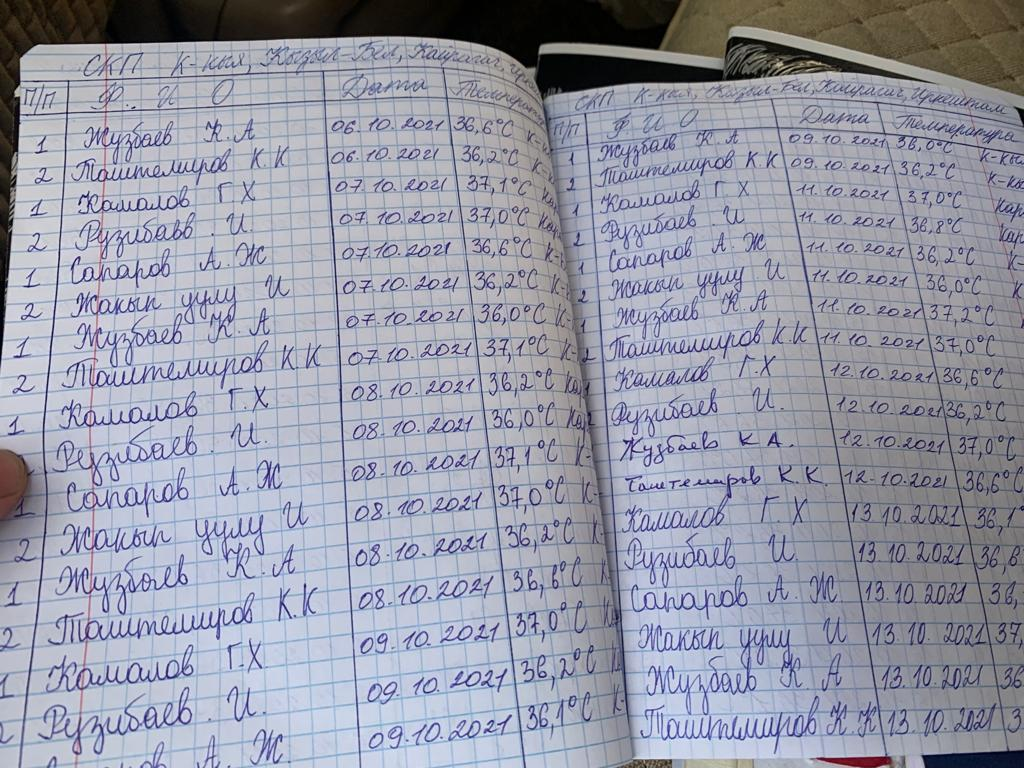 СКП К-кыя, Кызыл-Бел, Кайрагач,
П/П Ф. И О Дата Температура
1 Жузбаев К.А 06.10.2021 36,6°С
2 Таштемиров К.К 06.10.2021 36,2°С К-
1 Камалов Г.Х 07.10.2021 37,1°С
2 Рузибавв. И. 07.10.2021 37,0°С
1 Сапаров А.Ж 07.10.2021 36,6°С К-
2 Жакып уулу И 07.10.2021 36,2°С К-
1 Жузбаев К.А 07.10.2021 36,0°С К-
2 Таштемиров К.К 07.10.2021 37,1°С К-
1 Камалов Г.Х 08.10.2021 36,2°С
Рузибаев. И. 08.10.2021 36,0°С
1 Сапаров А.Ж 08.10.2021 37,1°С К-
2 Жакып уулу И 08.10.2021 37,0°С К-
1 Жузбаев К.А 08.10.2021 36,2°С К-
2 Таштемиров К.К 08.10.2021 36,6°С К-
1 Камалов Г.Х 09.10.2021 37,0°С
2 Рузибаев. И. 09.10.2021 36,2°С
А. Ж 09.10.2021 36,1°С К-
СКП К-кыя, Кызыл-Бел, Кайрагач, Иркештам
П/П Ф И О Дата Температура
1 Жузбаев К.А 09.10.2021 36,0°С К-кы
2 Таштемиров К.К 09.10.2021 36,2°С К-кы
1 Камалов Г Х 11.10.2021 37,0°С кар
2 Рузибаев И 11.10.2021 36,8°С кар
1 Сапаров А.Ж 11.10.2021 36,2°С К-
2 Жакып уулу И 11.10.2021 36,0°С К
1 Жузбаев К.А 11.10.2021 37,2°С
2 Таштемиров К.К 11.10.2021 37,0°С
1 Камалов Г.Х 12.10.2021 36,6°С
2 Рузибаев. И. 12.10.2021 36,2°С
Жузбаев К А. 12.10.2021 37,0°С
Таштемиров К.К. 12.10.2021 36,6°С
Камалов Г.Х 13.10.2021 36,1°
Рузибаев И. 13.10.2021 36,8
Сапаров А. Ж 13.10.2021 36,
Жакып уулу И 13.10.2021 37,
Жузбаев К А 13.10.2021 36
Таштемиров К.К 13.10.2021 3